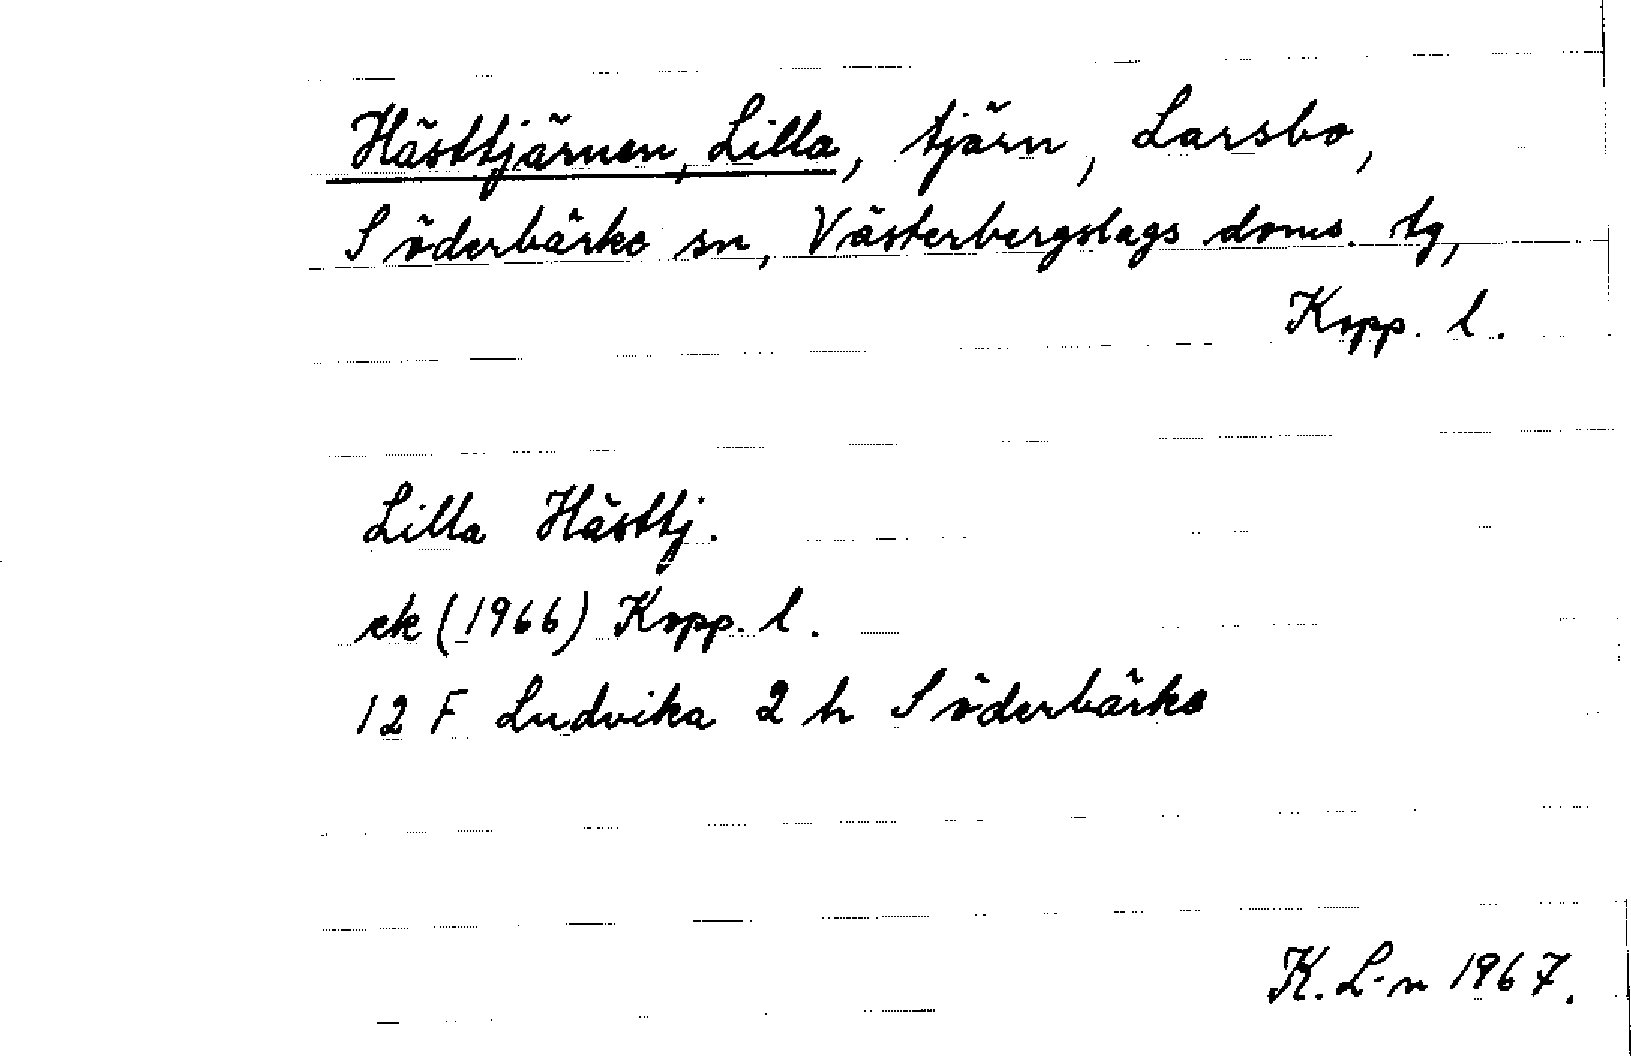 Hästtjärnen, Lilla, tjärn, Larsbo,
Söderbärke sn, Västerbergslags doms. tg,
Kopp. l.
Lilla Hästtj.
ek (1966) Kopp. l.
12 F Ludvika 2 h Söderbärke
K. L-n 1967.